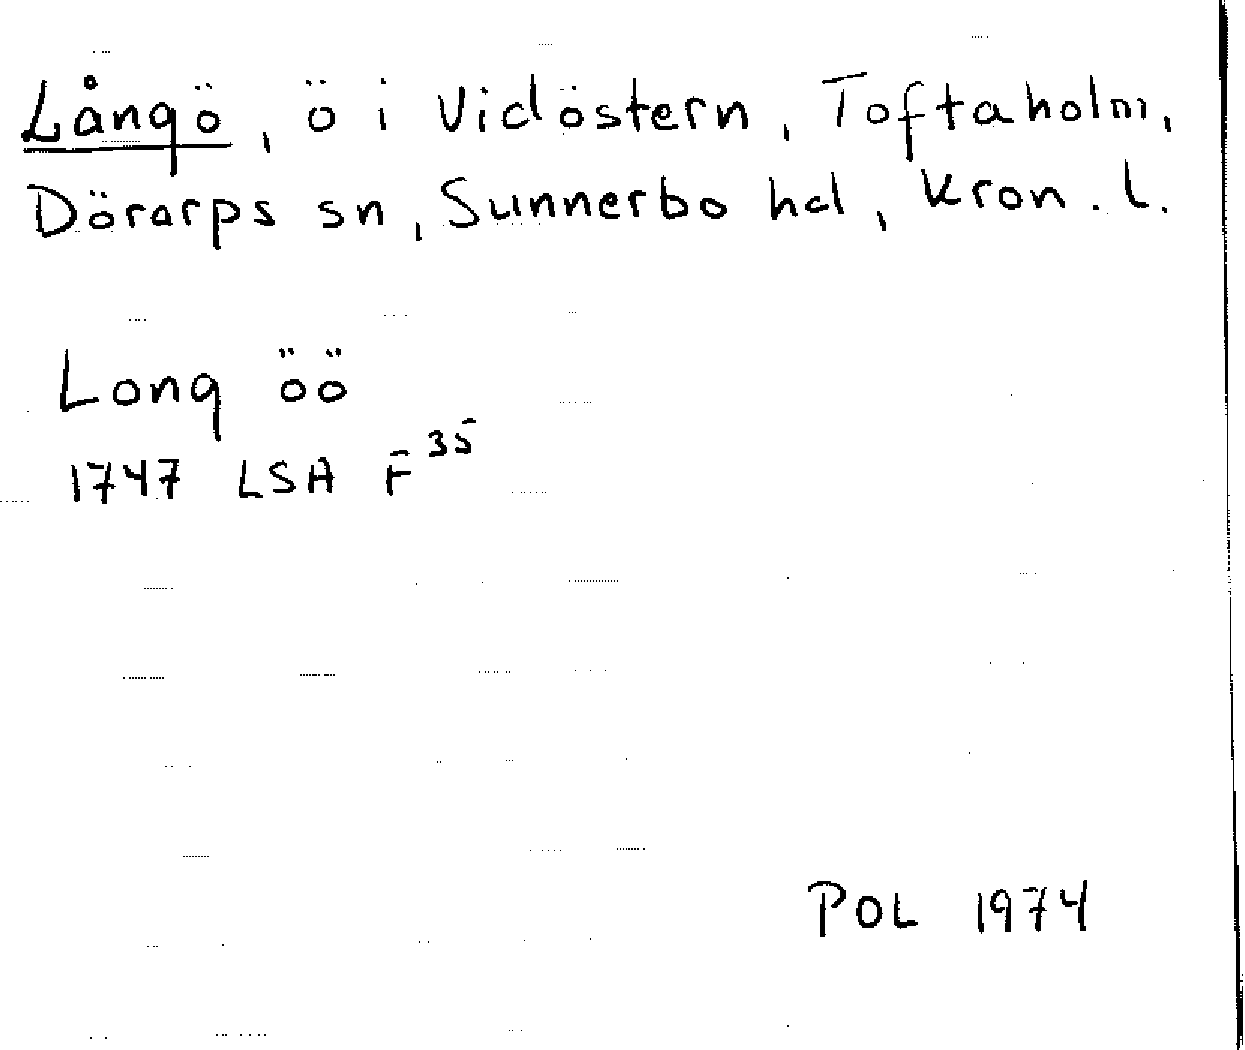 Långö, ö i Vidöstern, Toftaholm,
Dörarps sn, Sunnerbo hd, Kron. l.
Long öö
1747 LSA F 35
POL 1974